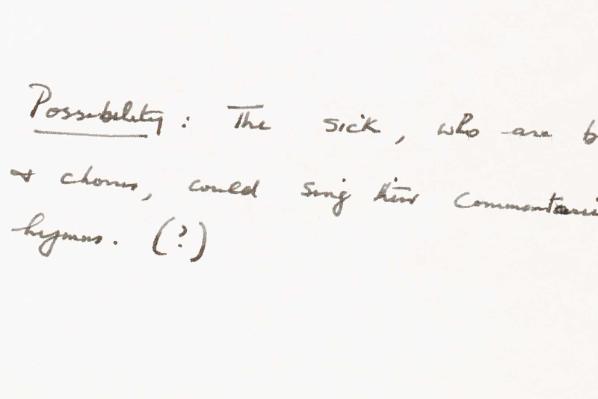 Possibility : The sick, who are b
& chorus, could sing their commentari
hymns. (?)